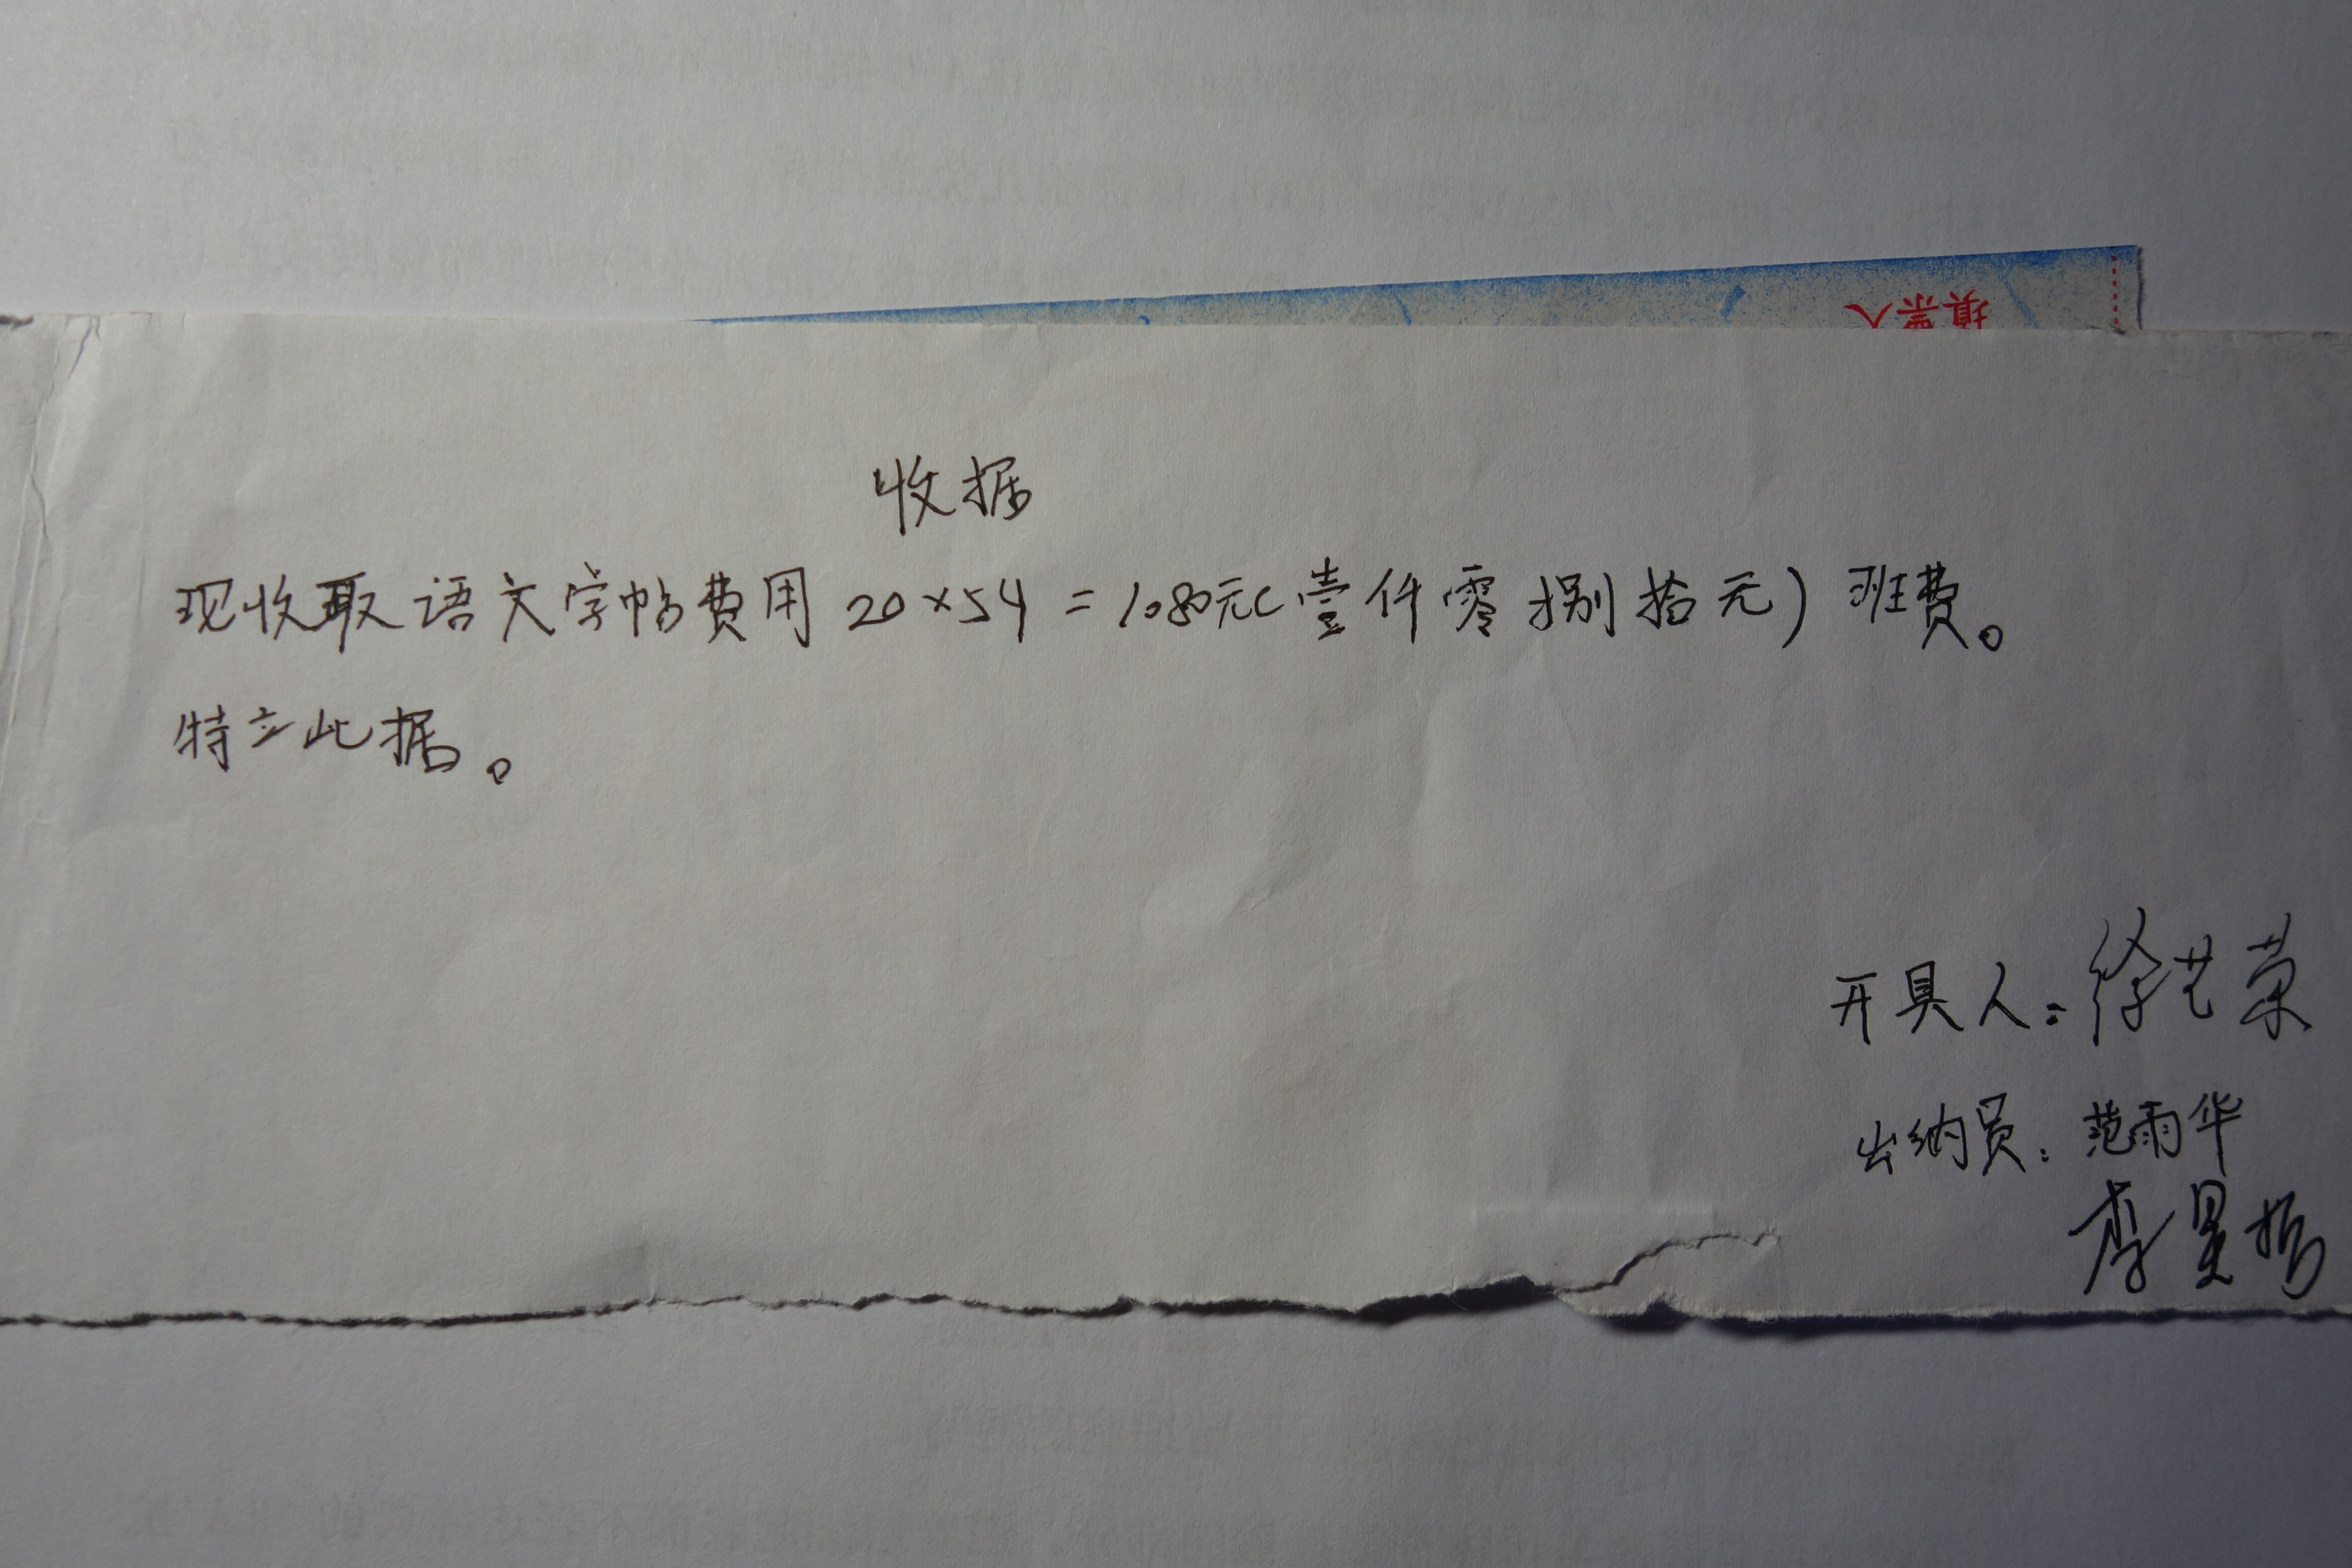 填票人
收据
现收取语文字帖费用 20×54 = 1080元(壹仟零捌拾元) 班费。
特立此据。
开具人:徐艺荣
出纳员:范雨华
李昱